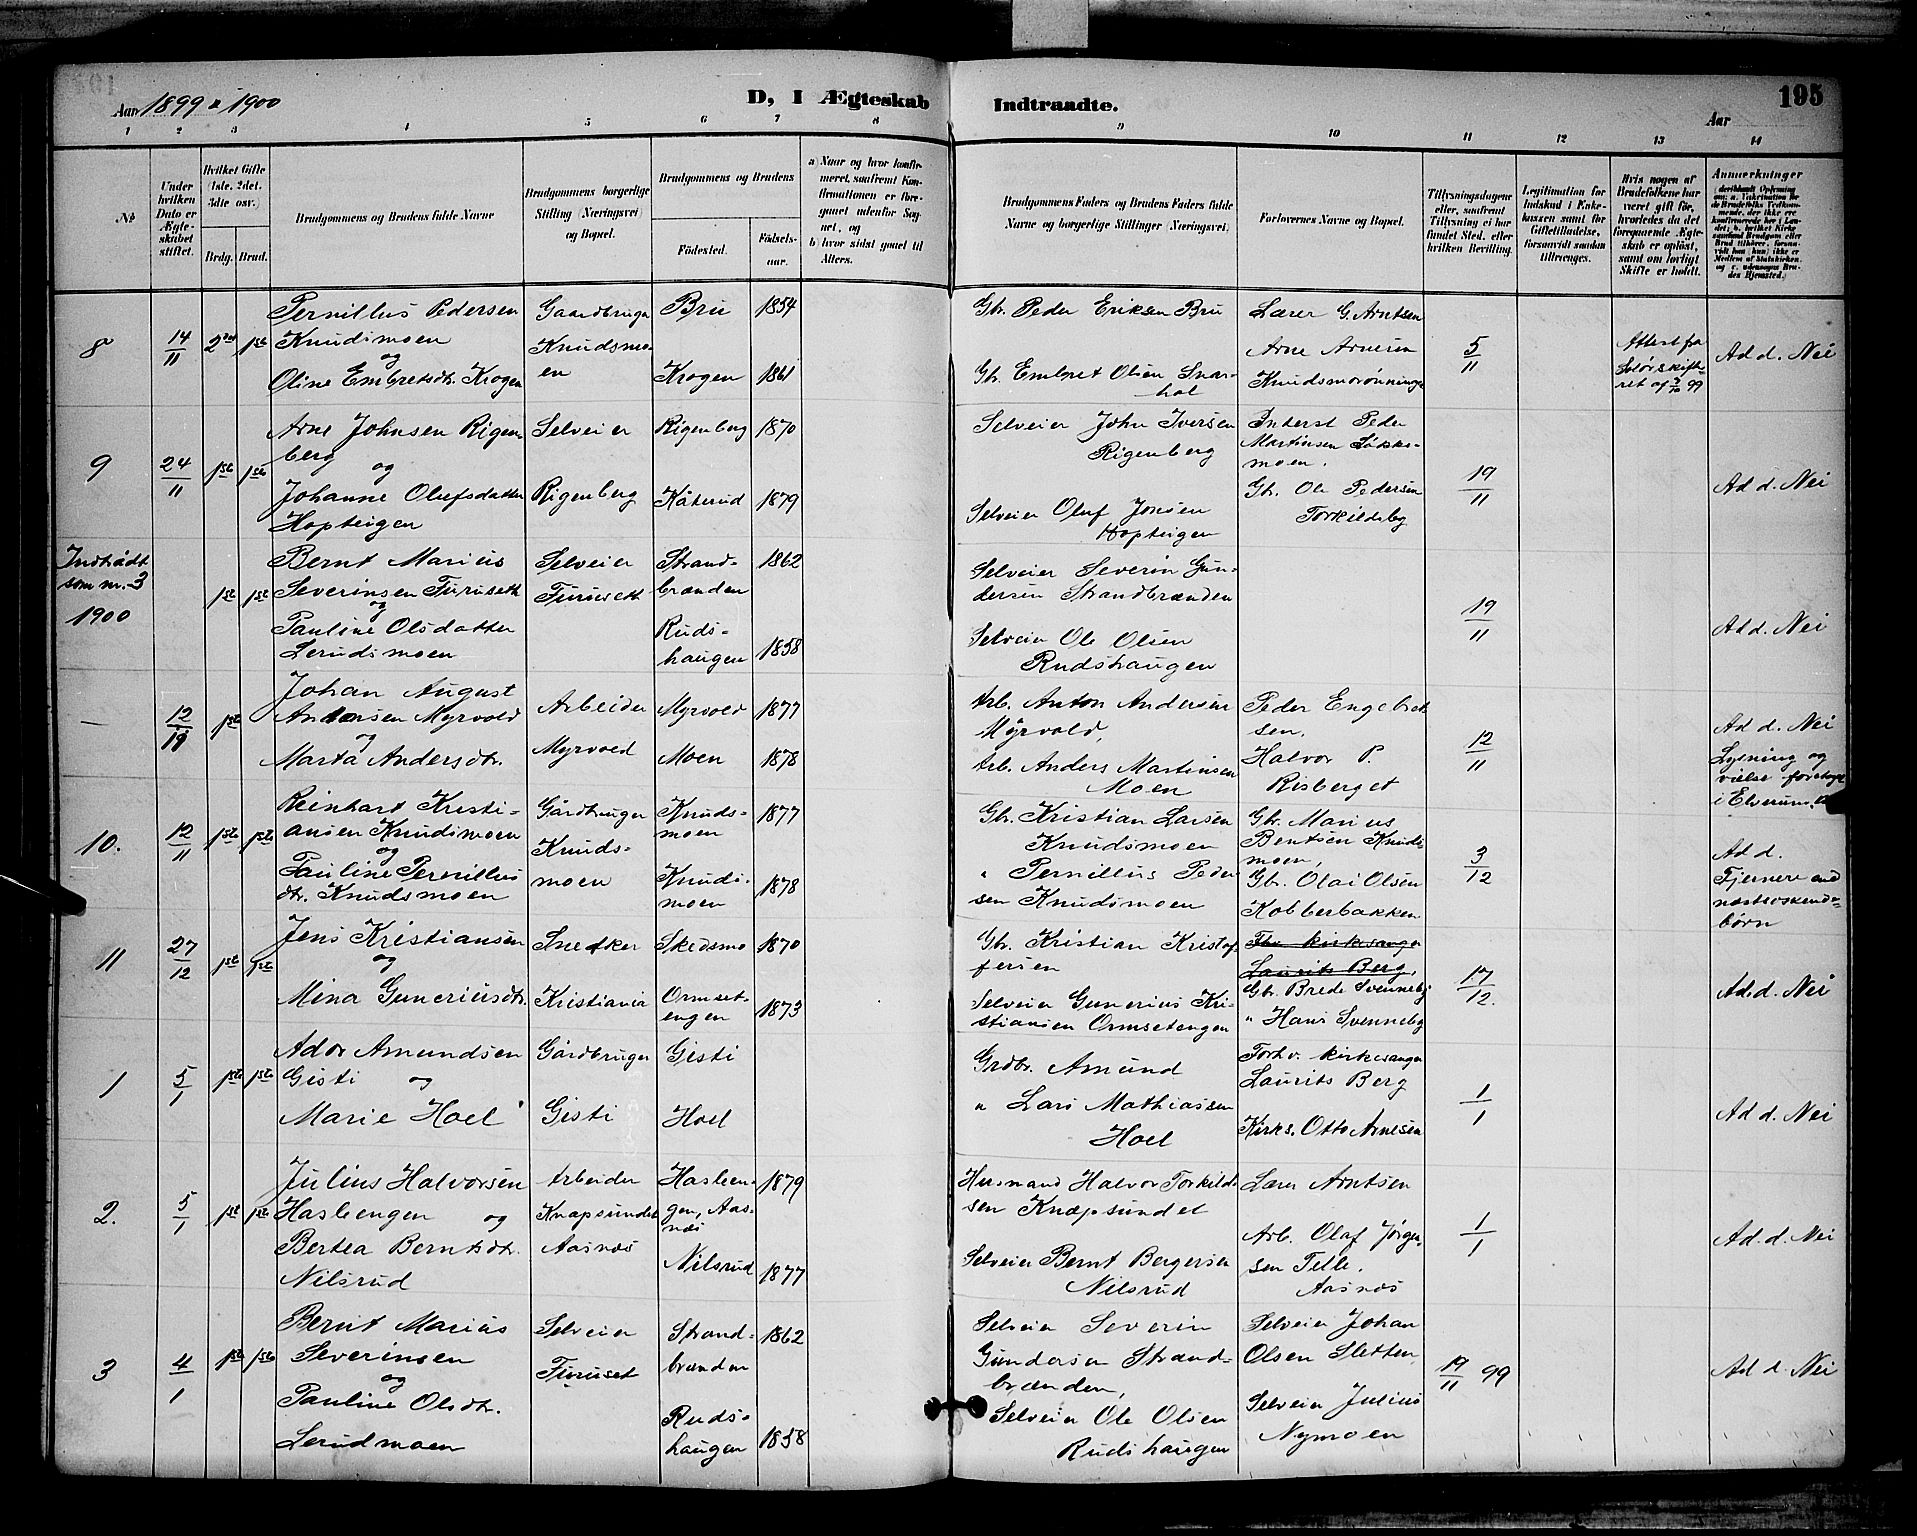 Aar 1899 & 1900
D, I Ægteskab Indtraadte.
195
Aar
1 2 3 4 5 6 7 8 9 10 11 12 13 14
No
Under hvilken Dato er Ægteskabet stiftet.
Hvilket Gifte (1ste, 2det, 3die osv.)
Brdg. Brud.
Brudgommens og Brudens fulde Navne
Brudgommens borgerlige Stilling (Næringsvei) og Bopæl.
Brudgommens og Brudens
Fødested.
Fødselsaar.
a) Naar og hvor konfirmeret, samt
b) hvor sidst gaaet til Alters.
Brudgommens Faders og Brudens Faders fulde Navne og borgerlige Stillinger (Næringsvei).
Forlovernes Navne og Bopæl.
Tillysningsdagene eller, saafremt Tillysning ei har fundet Sted, efter hvilken Bevilling.
Legitimation for Indskud i Enkekassen samt for Giftetilladelse, forsaavidt saadan tiltrænges.
Hvis nogen af Brudefolkene har været gift før, hvorledes da det foregaaende Ægteskab er opløst, samt om lovligt Skifte er holdt.
Anmærkninger
8
14/11
2den
1ste
Pernillus Pedersen
Knudsmoen
og
Oline Embretsdtr. Krogen
Gaardbruger
Knudsmoen
Bru
Krogen
1854
1861
Gbr. Peder Eriksen Bru
Gbr. Embret Olsen Snarhol
Lærer G. Arntsen
Arne Arnesen
5/11
Attest fra
Solør skifteret af 99
Ad d. Nei
9
24/11
1ste
1ste
Arne Johnsen Rigenberg
og
Johanne Olufsdatter
Hopteigen
Selveier
Rigenberg
Rigenberg
Kåterud
1870
1879
Selveier John Iversen
Rigenberg
Selveier Oluf Jonsen
Hopteigen
Inderst Peder
Martinsen Løkkemoen.
Gbr. Ole Pedersen
Torkildsby
19/11
Ad d. Nei
Indthådt
som nr. 3
1900
1ste
1ste
Bernt Marius
Severinsen Furuseth
og
Pauline Olsdatter
Lerudsmoen
Selveier
Furuseth
Strandbrænden
Rudshaugen
1862
1858
Selveier Severin Gundersen Strandbrænden
Selveier Ole Olsen
Rudshaugen
19/11
Ad d. Nei
—
12/19
1ste
Johan August
Andersen Myrvold
og
Marta Andersdtr.
Arbeider
Myrvold
Myrvold
Moen
1877
1878
Arb. Anton Andersen
Myrvold,
Arb. Anders Martinsen
Moen
Peder Engebretsen.
Halvor P.
Risberget
12/11
Ad d. Nei
Lysning og
vielse foretaget
i Elverum
10.
12/11
1ste
1ste
Reinhart Kristiansen Knudsmoen
og
Pauline Pernillusdtr. Knudsmoen
Gårdbruger
Knudsmoen
Knudsmoen
Knudsmoen
1877
1878
Gbr. Kristian Larsen
Knudsmoen
" Pernillus Pedersen Knudsmoen
Gbr. Marius
Bentsen Knudsmoen,
Gbr. Olai Olsen
Kobberbakken
3/12
Ad d.
Fjernere end
næstsøskendebørn
11
27/12
1ste
1ste
Jens Kristiansen
og
Mina Guneriusdtr.
Snedker
Kristiania
Skedsmo
Ormsetengen
1870
1873
Gbr. Kristian Kristoffersen
Selveier Gunerius Kristiansen Ormsetengen
Fhv. kirkesanger
Laurits Berg,
Gbr. Brede Svenneby
" Hans Svenneby
17/12.
Ad. d. Nei
1
5/1
1ste
1ste
Ador Amundsen
Gisti og
Marie Hoel
Gårdbruger
Gisti
Gisti
Hoel
Grdbr. Amund
" Lars Mathiassen
Hoel
Forhv. kirkesanger
Laurits Berg
Kirks. Otto Arnesen
1/1
Ad d. Nei
2.
5/1
1ste
1ste
Julius Halvorsen
Hasleengen og
Bertea Berntsdtr.
Nilsrud
Arbeider
Knapsundet
Aasnæs
Hasleengen, Aasnæs
Nilsrud
1879
1877
Husmand Halvor Torkildsen Knapsundet
Selveier Bernt Bergersen
Nilsrud
Lærer Arntsen
Arb. Olaf Jørgensen Telle.
Aasnæs
1/1
Ad. d. Nei
3
4/1
1ste
1ste
Bernt Marius
Severinsen
og
Pauline Olsdtr.
Lerudmoen
Selveier
Furuset
Strandbrænden
Rudshaugen
1862
1858
Selveier Severin
Gundersen Strandbrænden,
Selveier Ole Olsen
Rudshaugen
Selveier Johan
Olsen Sletten,
Selveier Julius
Nymoen
19/11 99
Ad d. Nei